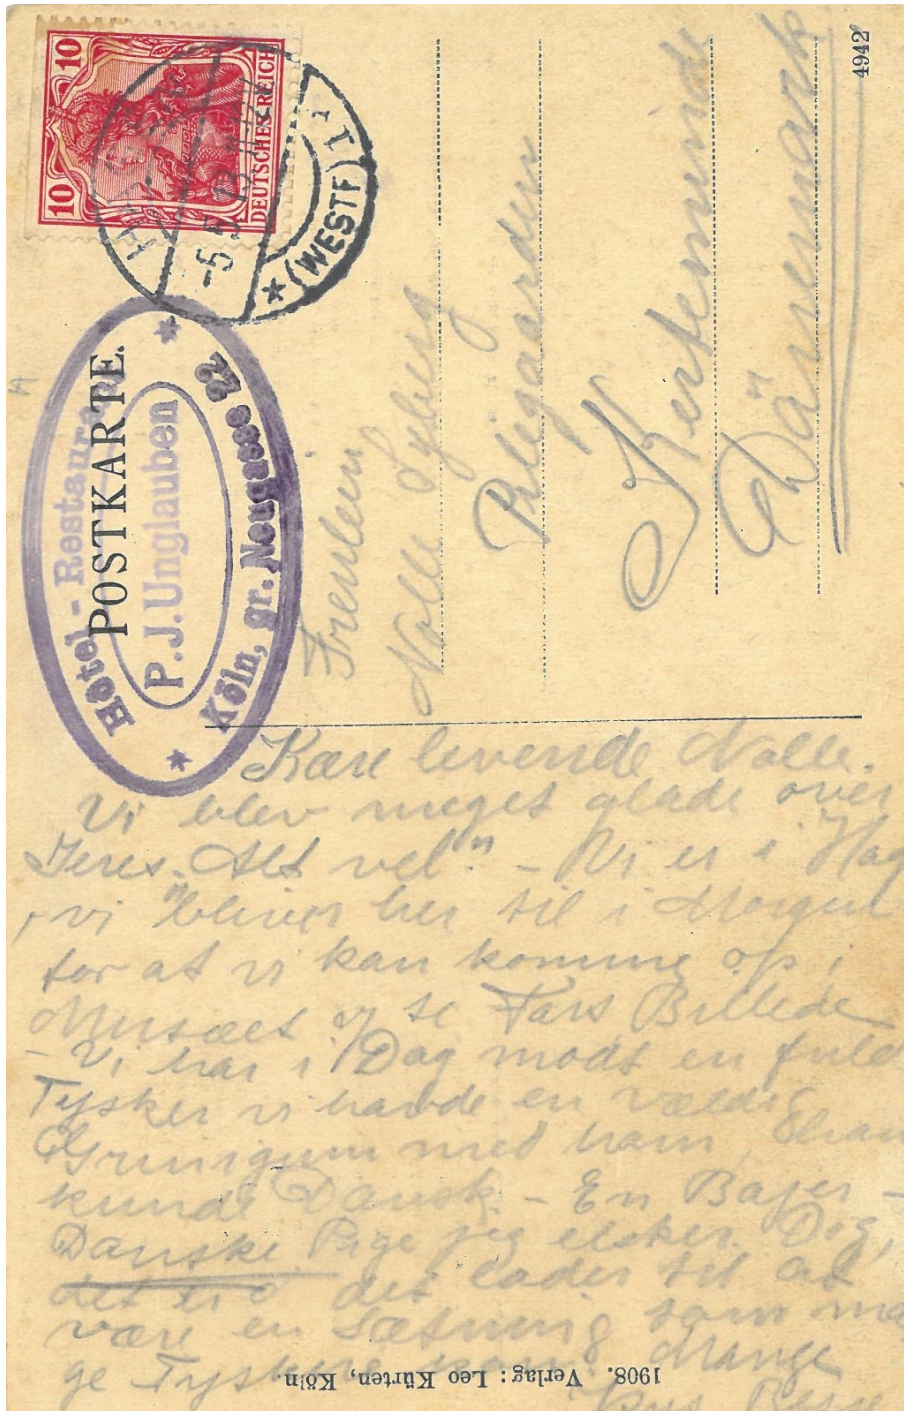 10 10
DEUTSCHES REICH
-5.5.13
* (WESTF) 1
Hôtel - Restaurant
P. J. Unglauben
Köln, gr. Neugasse 22
POSTKARTE.
4942
Freulein
Nolle Syberg
Pilegaarden
Kerteminde
Dänemark
Kære levende Nolle.
Vi blev meget glade over
Jeres „Alt vel“ - Vi er i Hag
, vi bliver her til i Morgen
for at vi kan komme op i
Musæet og se Fars Billede
- Vi har i Dag mødt en fuld
Tysker vi havde en vældig
med ham,
kunde Dansk. - En Bajer -
Danske Pige jeg elsker Dig,
det er det lader til at
være en Sætning som man
ge Tyskere Mange
Kys
1908. Verlag: Leo Kürten, Köln.